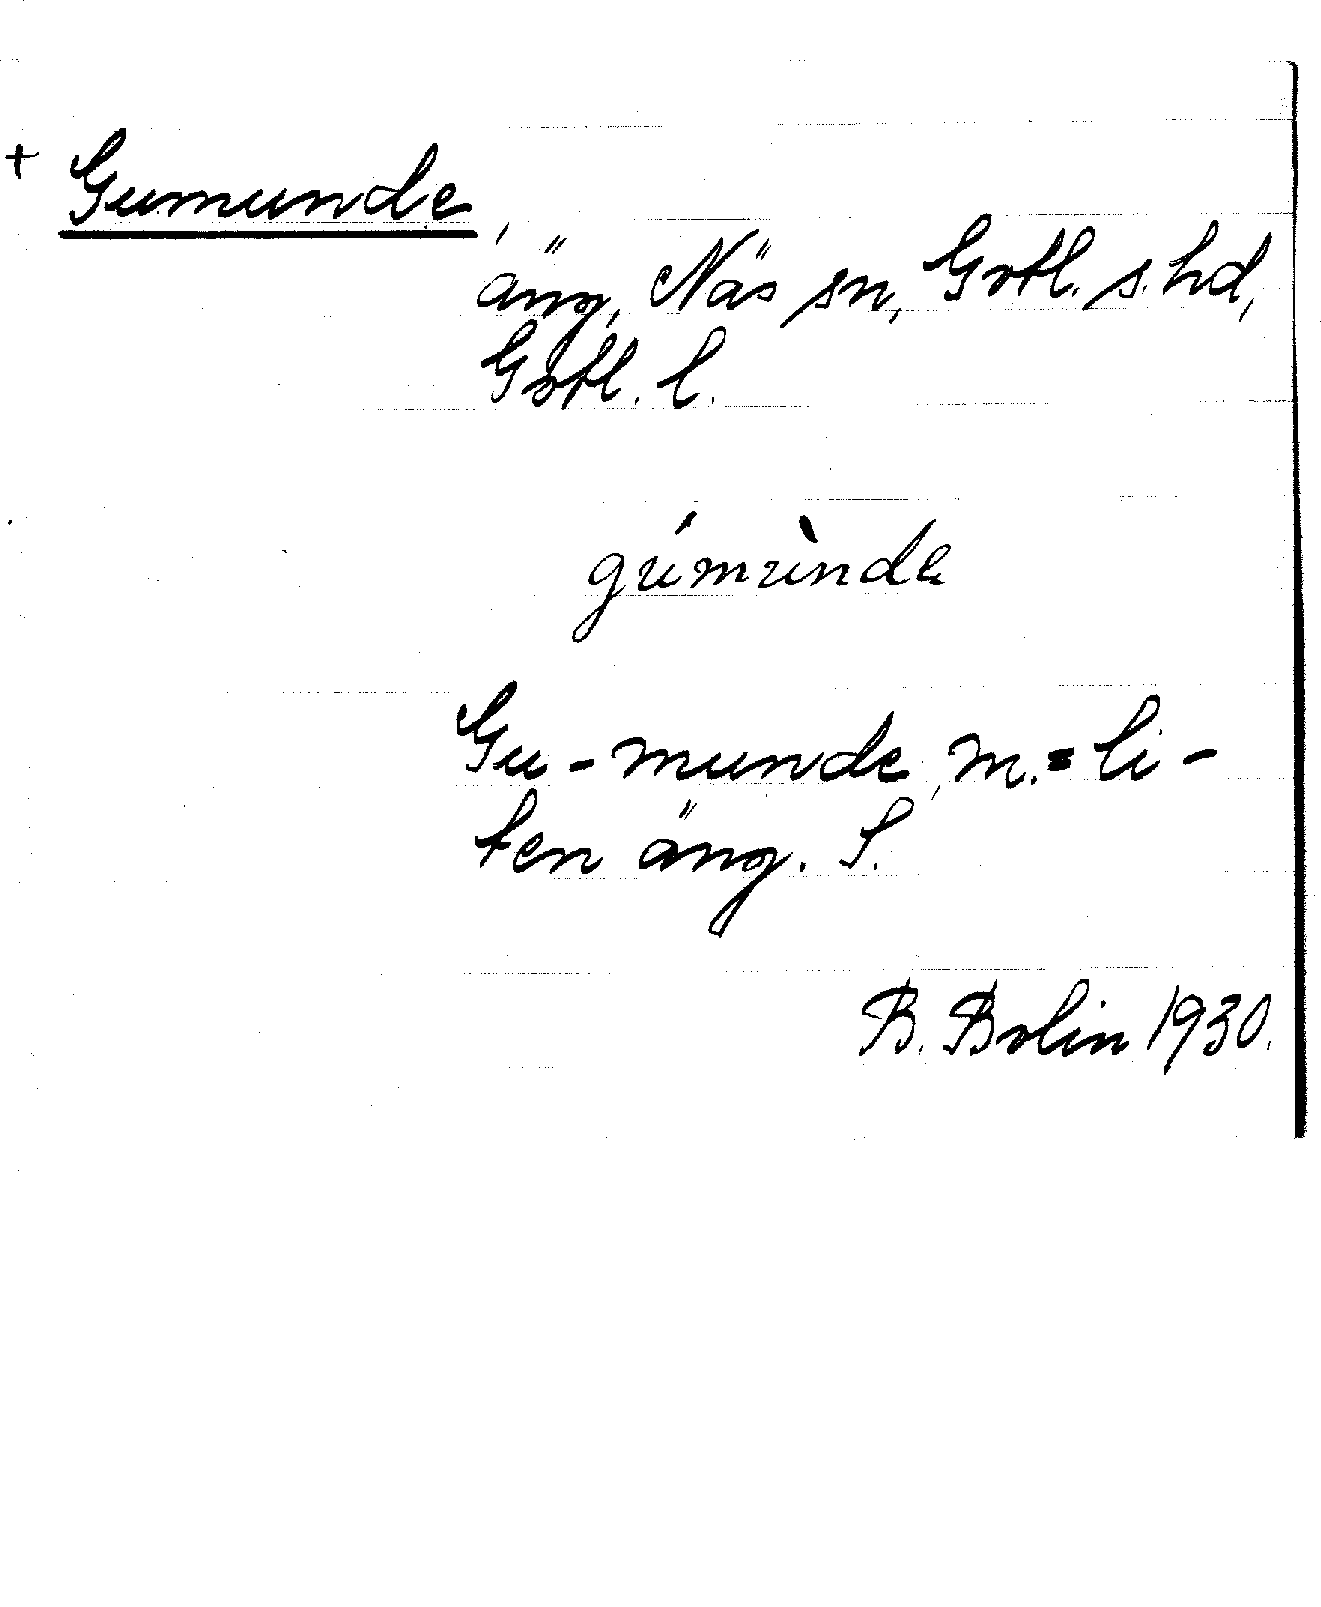 + Gumunde,
äng, Näs sn, Gotl. s. hd,
Gotl. l.
gúmùnde
Gu-munde, m. = li-
ten äng. S.
B. Bolin 1930.